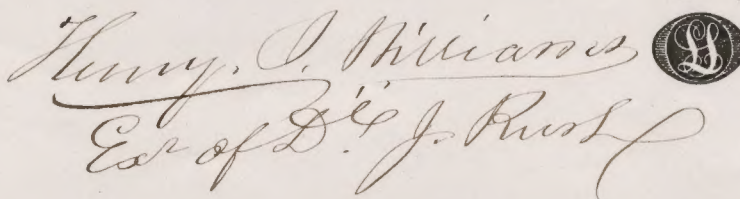 Henry. J. Williams LS
Exr of Dr. J. Rush